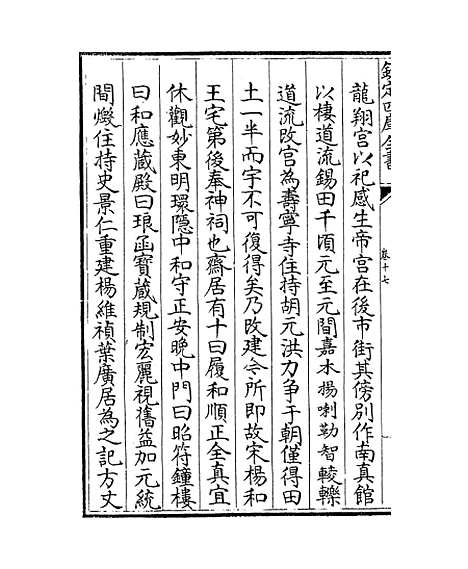 龍翔宫以祀感生帝宫在後市街其傍别作南真館
以棲道流錫田千頃元至元間嘉木揚喇勒智輘轢
道流改宫為壽寧寺住持胡元洪力争于朝僅得田
土一半而宇不可復得矣乃改建今所即故宋楊和
王宅第後奉神祠也齋居有十曰履和順正全真宜
休觀妙東明環隱中和守正安晚中門曰昭符鐘樓
曰和應藏殿曰琅函寳藏規制宏麗視舊益加元統
間燬住持史景仁重建楊維禎葉廣居為之記方丈
欽定四庫全書
卷十七